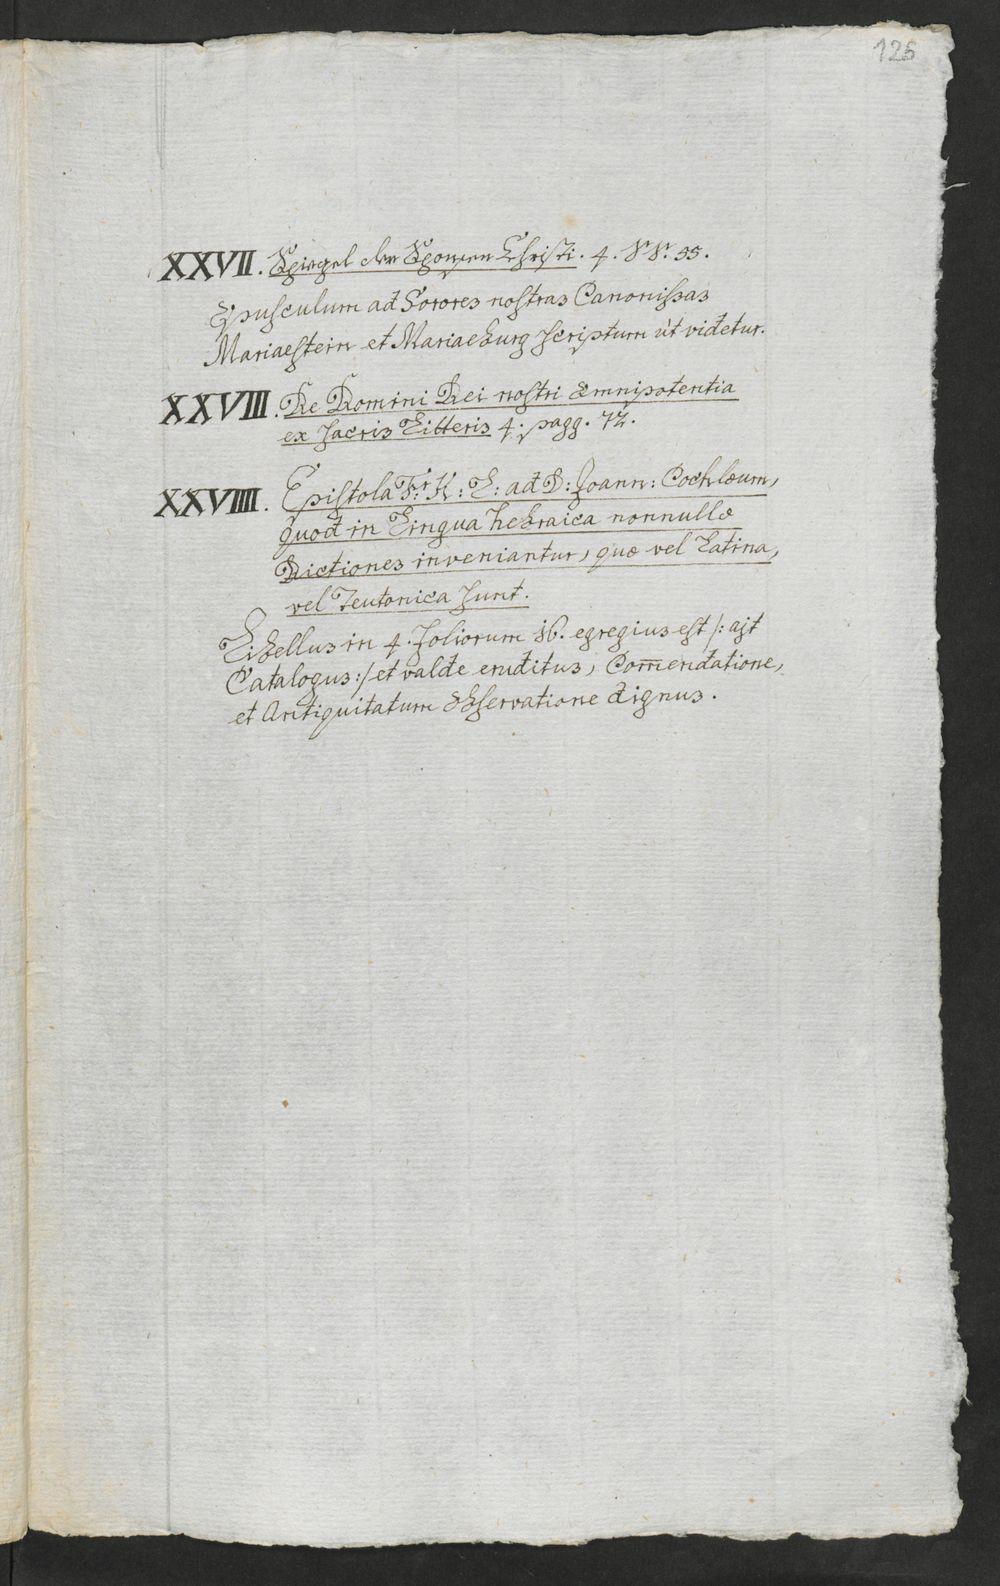 126
XXVII. Spiegel der Sponsen Christi. 4. 55.
Opusculum ad Sorores nostras Canonissas
Mariaestein et Mariaeburg scriptum ut videtur.
XXVIII. De Domini Dei nostri Omnipotentia
ex sacris Litteris 4. pagg. 72.
XXVIIII. Epistola Fr: K: L: ad D: Joann: Cochlæum,
quod in Lingua hebraica nonnullæ
Dictiones inveniantur, quæ vel Latina,
vel Teutonica sunt.
Libellus in 4. foliorum 16. egregius est /: ajt
Catalogus :/ et valde eruditus, Com̅endatione,
et Antiquitatum Observatione dignus.